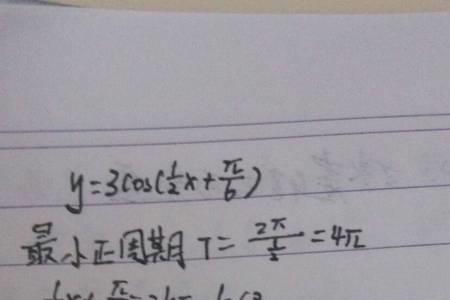 y=3cos(½x+π/6)
最小正周期 T=2π/½=4π